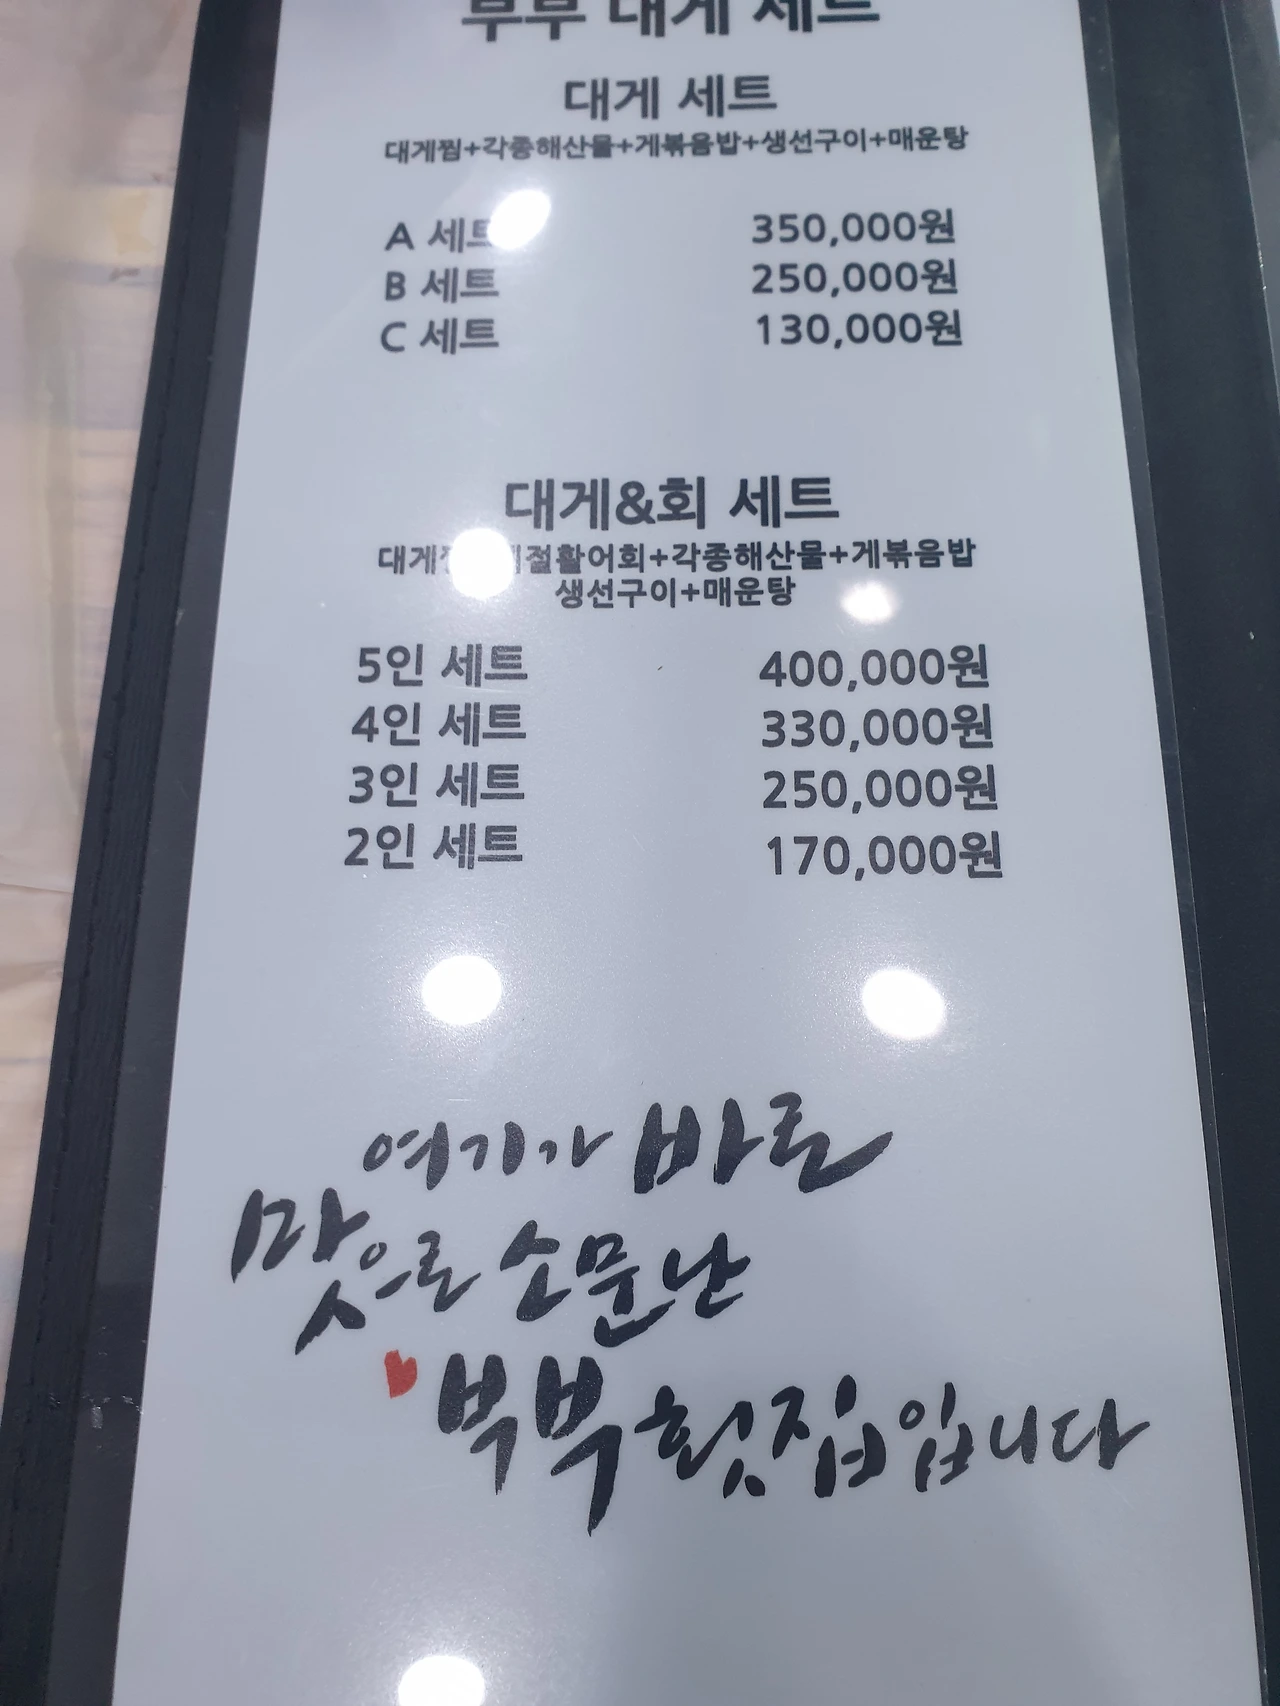 부부 대게 세트
대게 세트
대게찜+각종해산물+게볶음밥+생선구이+매운탕
A 세트 350,000원
B 세트 250,000원
C 세트 130,000원
대게&회 세트
대게찜 절활어회+각종해산물+게볶음밥
생선구이+매운탕
5인 세트 400,000원
4인 세트 330,000원
3인 세트 250,000원
2인 세트 170,000원
여기가 바로
맛으로 소문난
부부횟집입니다